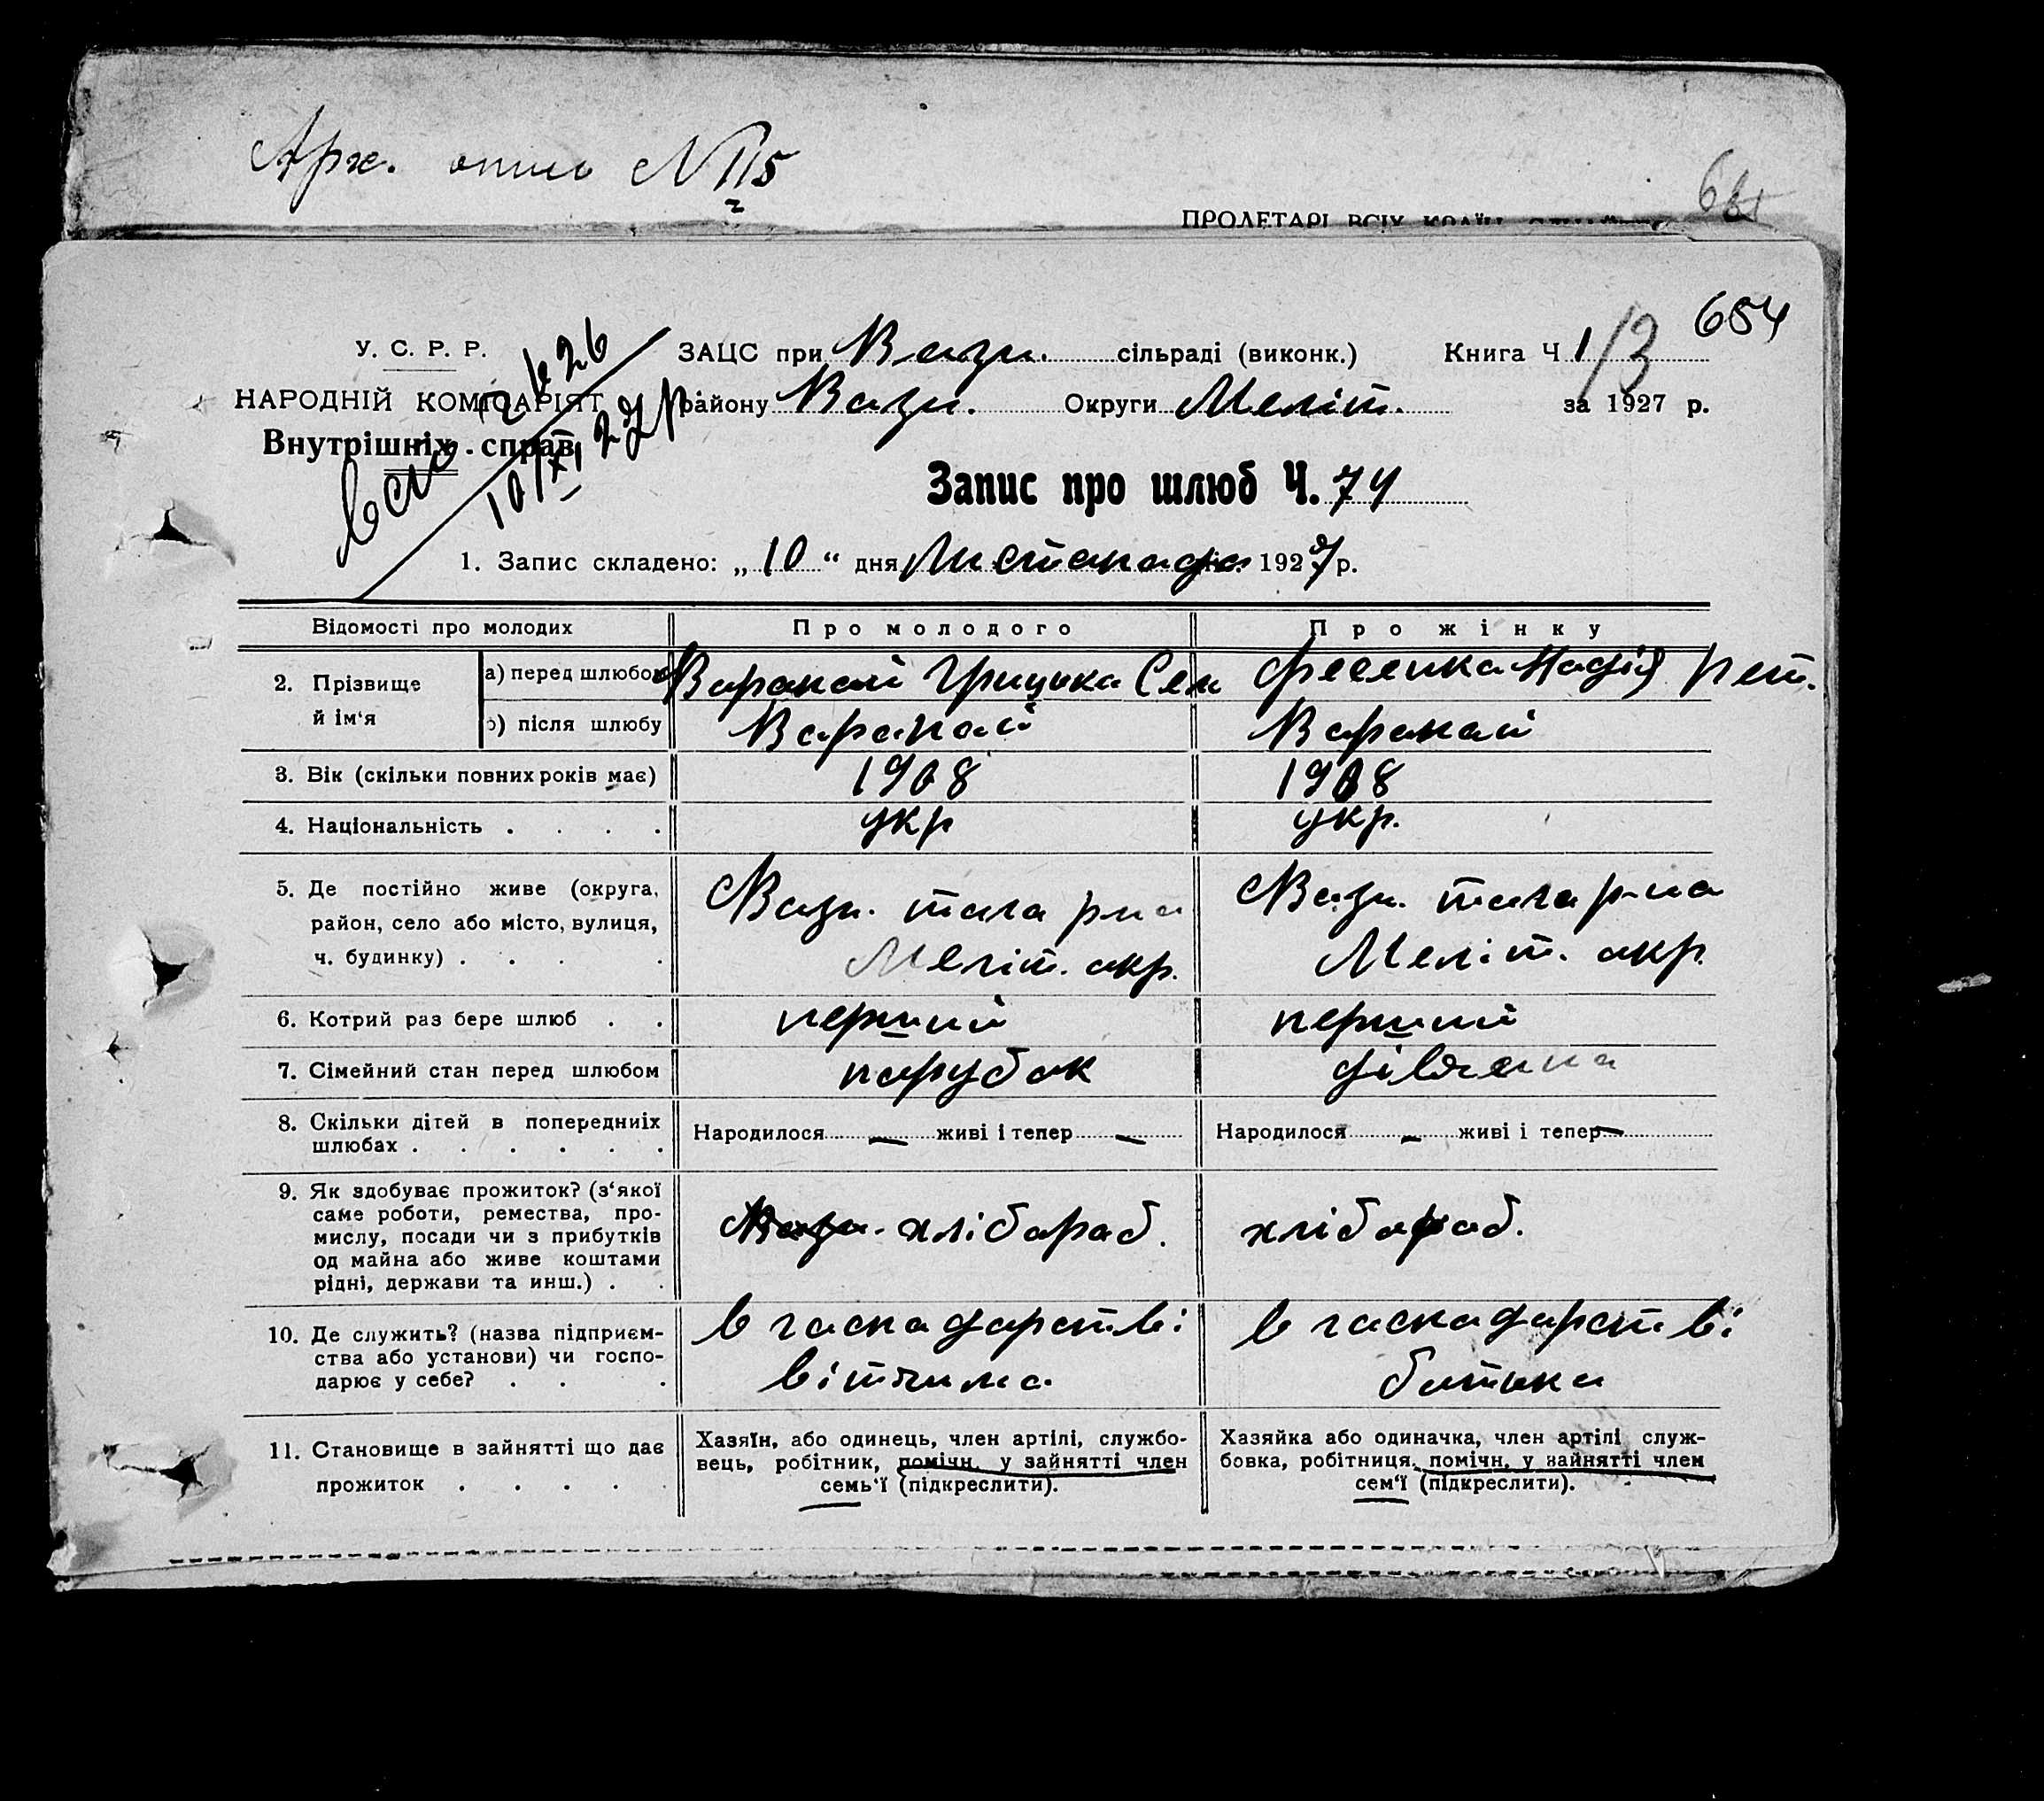 Арх. опис N 115
ПРОЛЕТАРІ ВСІХ КРАЇН
654
У. С. Р. Р.
НАРОДНІЙ КОМІСАРІЯТ
Внутрішніх справ
10/XI 27 р
ЗАЦС при Вазн. сільраді (виконк.) Книга Ч 1/3
району Вазн. Округи Меліт. за 1927 р.
Запис про шлюб Ч. 74
1. Запис складено: „10“ дня Листопада 1927 р.
Відомості про молодих Про молодого Про жінку
2. Прізвище й ім‘я
а) перед шлюбом Варакай Грицька Сем Фесенка Надія Пет.
б) після шлюбу Варакай Варакай
3. Вік (скільки повних років має) 1908 1908
4. Національність . . . . укр укр.
5. Де постійно живе (округа, район, село або місто, вулиця, ч. будинку) . . . .
Вазн. того р-на
Меліт. окр.
Вазн. того р-на
Меліт. окр.
6. Котрий раз бере шлюб . . перший перший
7. Сімейний стан перед шлюбом парубок дівчена
8. Скільки дітей в попередниіх шлюбах . . . . . .
Народилося — живі і тепер —
Народилося — живі і тепер —
9. Як здобуває прожиток? (з‘якої
саме роботи, ремества, про-
мислу, посади чи з прибутків
од майна або живе коштами
рідні, держави та инш.) . .
Вазн. хлібороб.
хлібороб.
10. Де служить? (назва підприєм-
ства або установи) чи госпо-
дарює у себе? . . .
в господарстві
вітчима
в господарстві
батька
11. Становище в зайнятті що дає
прожиток . . . . .
Хазяїн, або одинець, член артілі, службо-
вець, робітник, помічн. у зайнятті член
семь‘ї (підкреслити).
Хазяйка або одиначка, член артілі служ-
бовка, робітниця, помічн. у зайнятті член
сем‘ї (підкреслити).